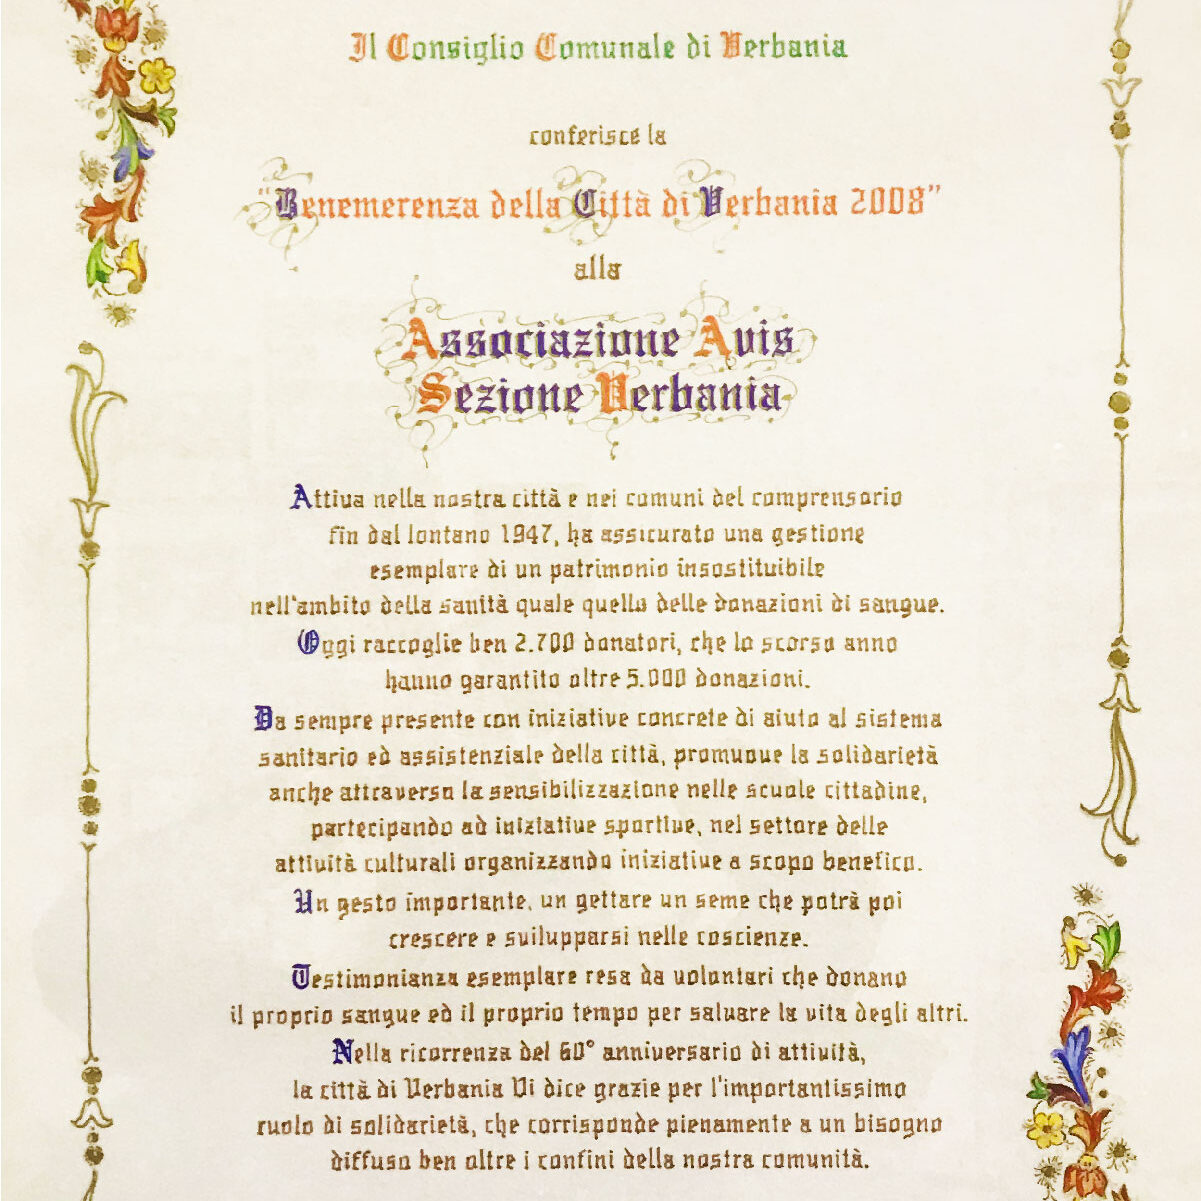 Il Consiglio Comunale di Verbania
conferisce la
"Benemerenza della Città di Verbania 2008"
alla
Associazione Avis
Sezione Verbania
Attiva nella nostra città e nei comuni del comprensorio
fin dal lontano 1947, ha assicurato una gestione
esemplare di un patrimonio insostituibile
nell'ambito della sanità quale quello delle donazioni di sangue.
Oggi raccoglie ben 2.700 donatori, che lo scorso anno
hanno garantito oltre 5.000 donazioni.
Da sempre presente con iniziative concrete di aiuto al sistema
sanitario ed assistenziale della città, promuove la solidarietà
anche attraverso la sensibilizzazione nelle scuole cittadine,
partecipando ad iniziative sportive, nel settore delle
attività culturali organizzando iniziative a scopo benefico.
Un gesto importante, un gettare un seme che potrà poi
crescere e svilupparsi nelle coscienze.
Testimonianza esemplare resa da volontari che donano
il proprio sangue ed il proprio tempo per salvare la vita degli altri.
Nella ricorrenza del 60° anniversario di attività,
la città di Verbania Vi dice grazie per l'importantissimo
ruolo di solidarietà, che corrisponde pienamente a un bisogno
diffuso ben oltre i confini della nostra comunità.